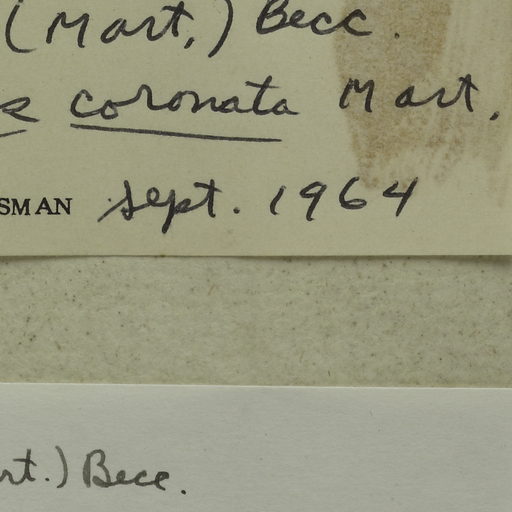 (Mart.) Becc.
coronata Mart.
SMAN Sept. 1964
rt.) Becc.